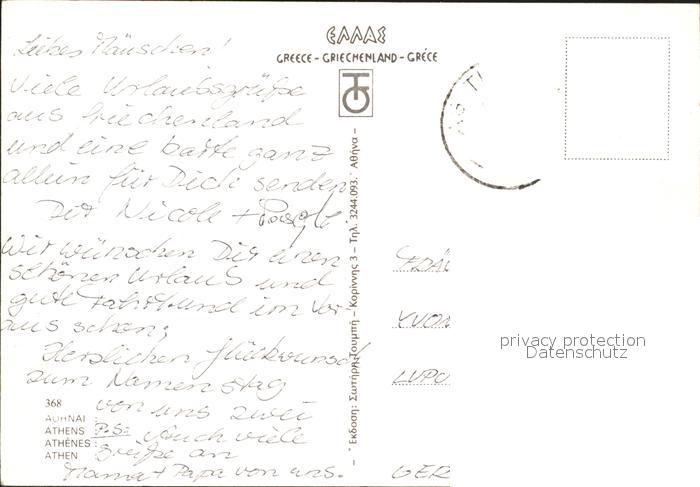 ΕΛΛΑΣ
GREECE - GRIECHENLAND - GRÈCE
Liebes Mäuschen!
Viele Urlaubsgrüße
aus Griechenland
und eine Karte ganz
allein für Dich senden
Dir Nicole +
Wir wünschen Dir einen
schönen Urlaub und
gute Fahrt und im Vor-
aus schon;
Herzlichen Glückwunsch
zum Namenstag
von uns zwei
P.S.: Auch viele
Grüße an
Mama + Papa von uns.
368
ΑΘΗΝΑΙ
ATHENS
ATHÈNES
ATHEN
Έκδοση: Σωτήρη Τουμπή - Κορίννης 3 - Τηλ. 3244.093. Αθήνα -
FRÄU
YVON
GER
privacy protection
Datenschutz